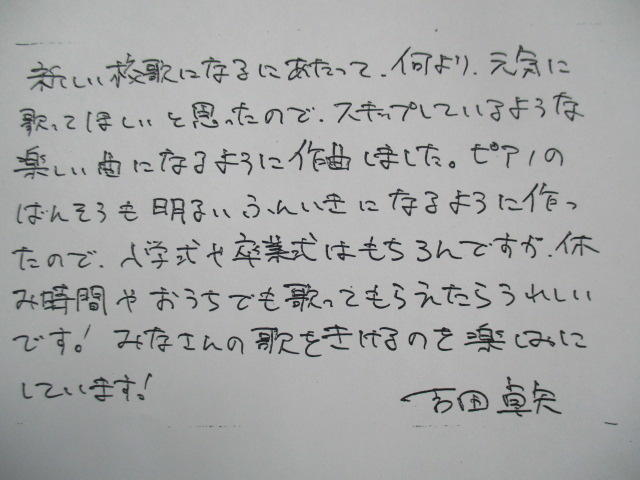 新しい校歌になるにあたって、何より、元気に
歌ってほしいと思ったので、スキップしているような
楽しい曲になるように作曲しました。ピアノの
ばんそうも明るいふんいきになるように作っ
たので、入学式や卒業式はもちろんですが、休
み時間やおうちでも歌ってもらえたらうれしい
です！みなさんの歌をきけるのを楽しみに
しています！
吉田